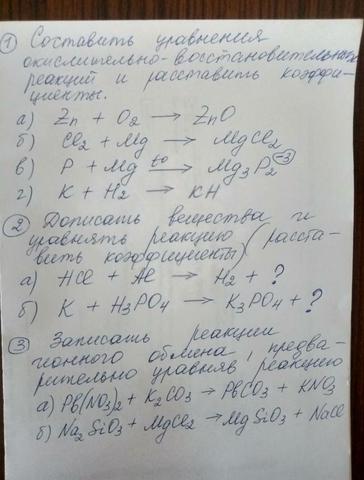 ① Составить уравнения
окислительно-восстановительных
реакций и расставить коэффи-
циенты.
а) Zn + O₂ → ZnO
б) Cl₂ + Mg → MgCl₂
в) P + Mg t° → Mg₃P₂⁻³
г) K + H₂ → KH
② Дописать вещества и
уравнять реакцию (расста-
вить коэффициенты)
а) HCl + Al → H₂ + ?
б) K + H₃PO₄ → K₃PO₄ + ?
③ Записать реакции
ионного обмена, предва-
рительно уравняв реакцию
а) Pb(NO₃)₂ + K₂CO₃ → PbCO₃ + KNO₃
б) Na₂SiO₃ + MgCl₂ → MgSiO₃ + NaCl